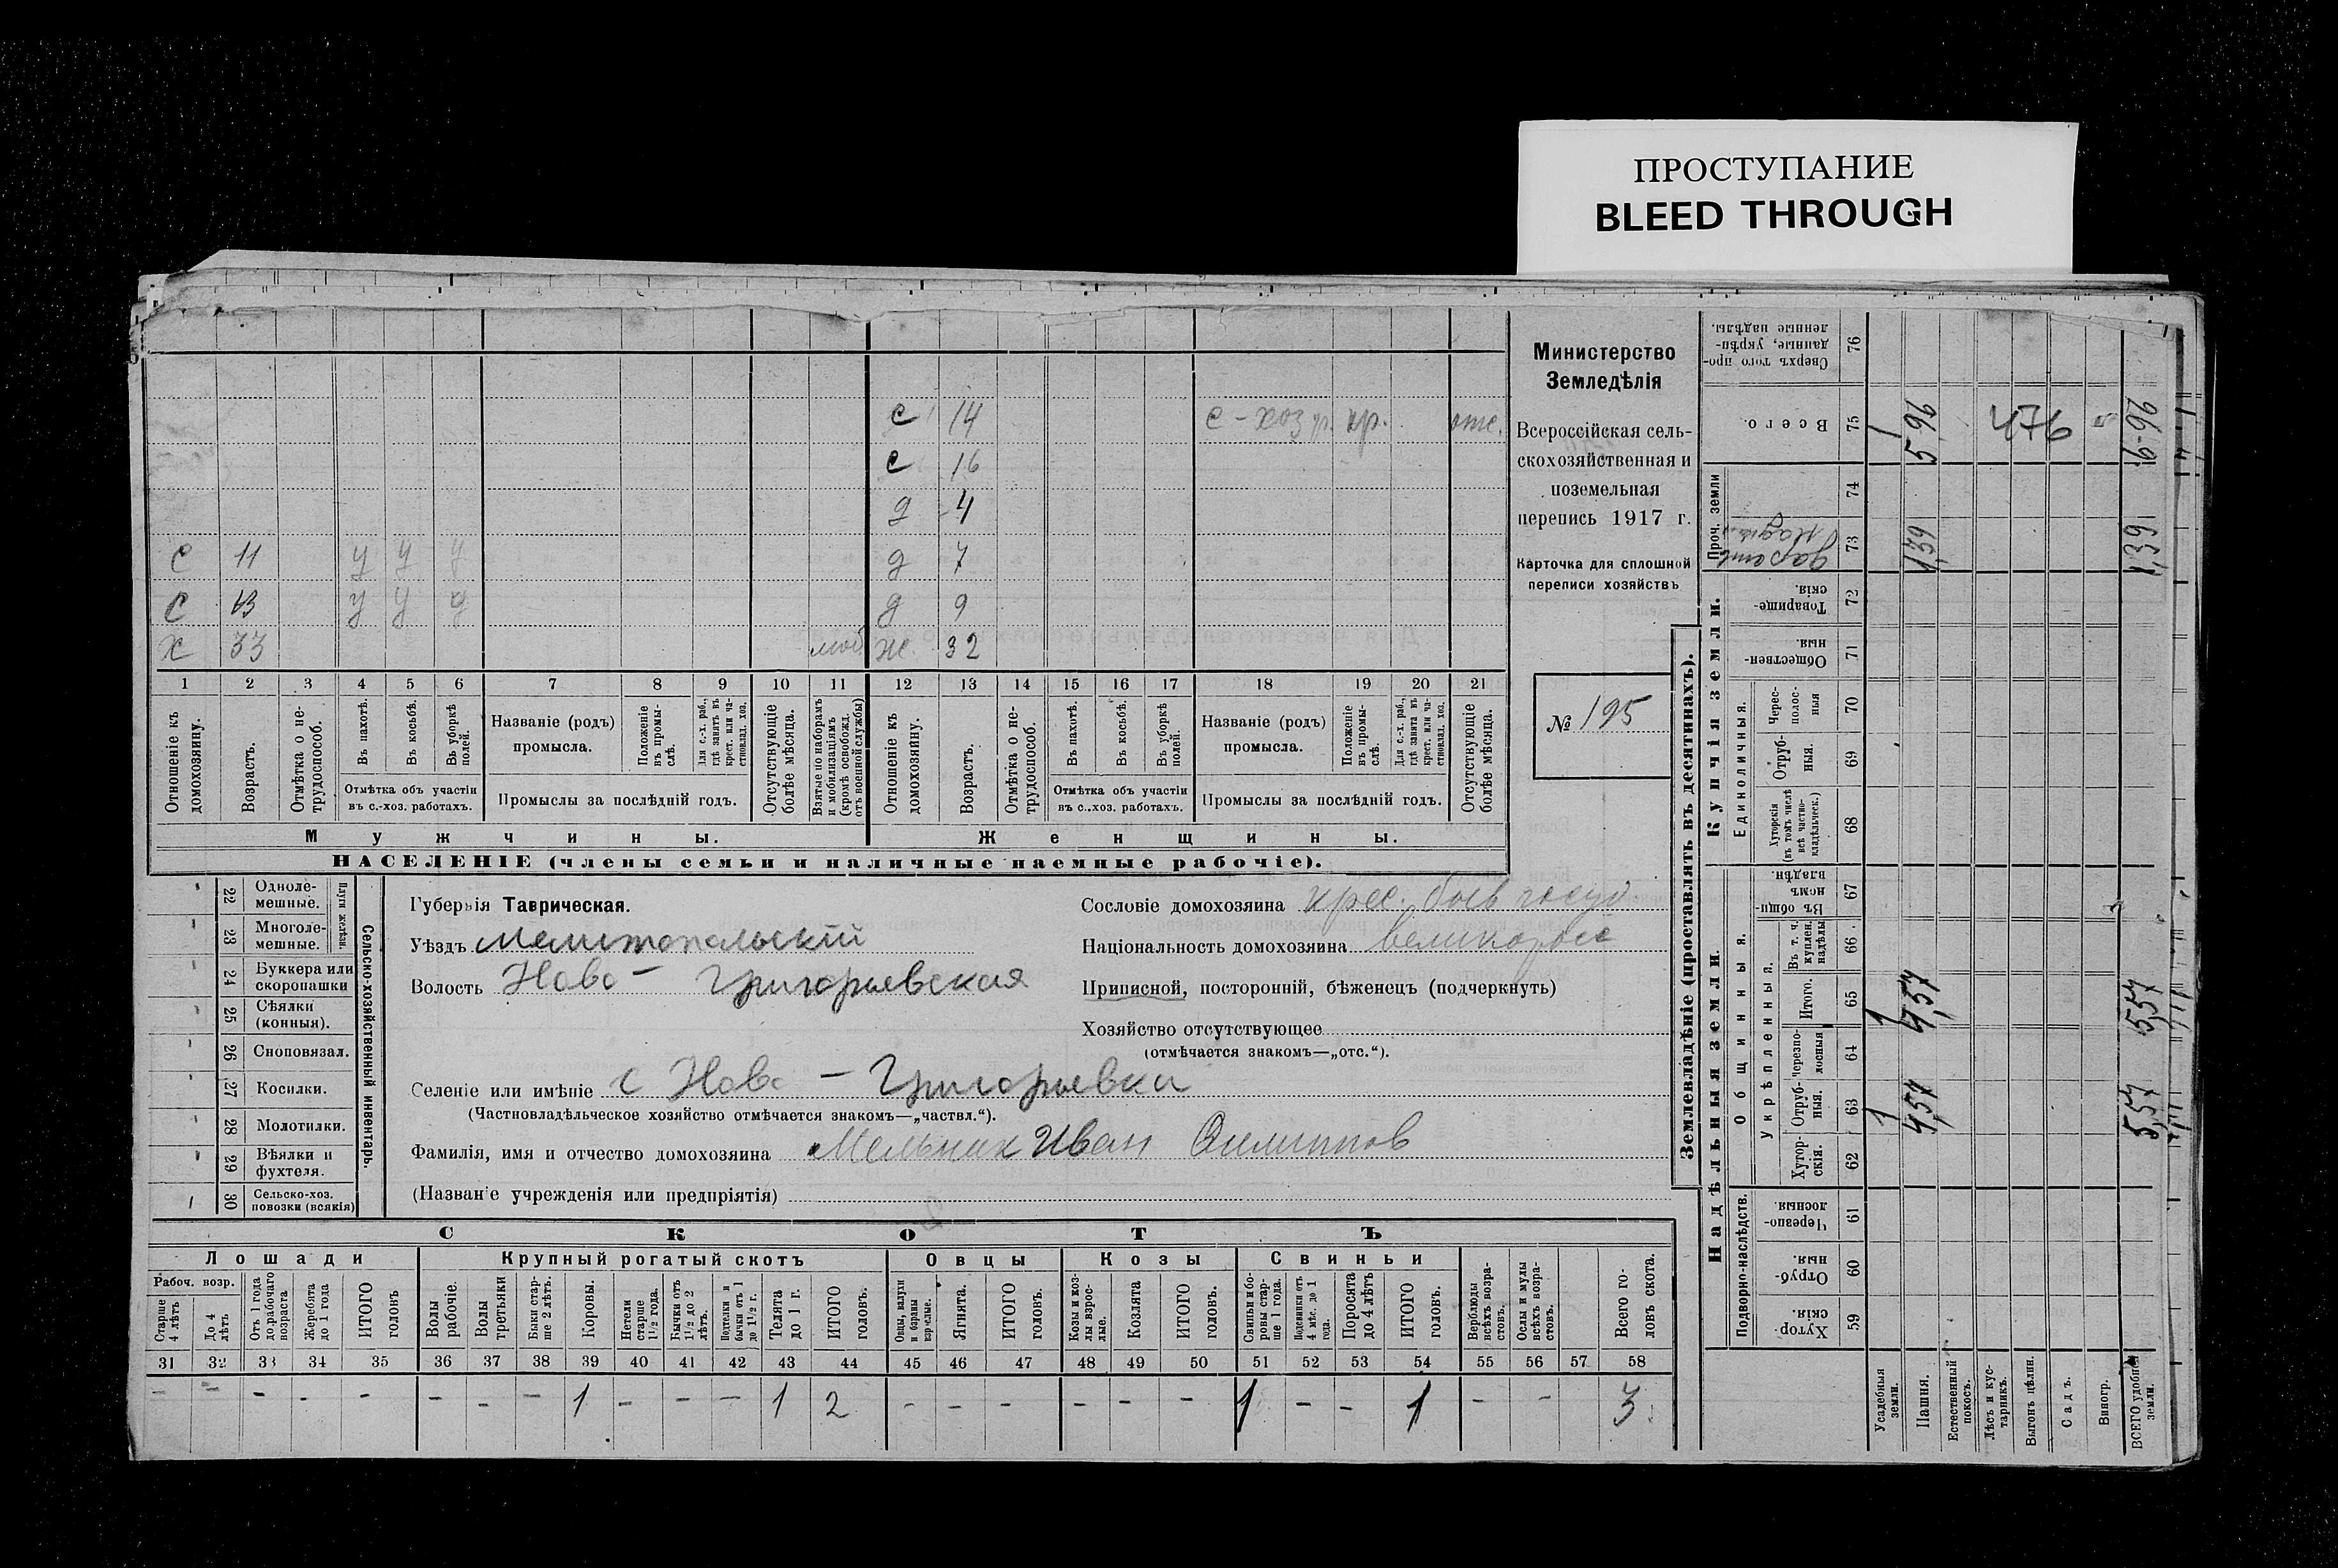 ПРОСТУПАНИЕ
BLEED THROUGH
Министерство
Земледѣлія
Всероссійская сель-
скохозяйственная и
поземельная
перепись 1917 г.
Карточка для сплошной
переписи хозяйствъ
№ 195
с 14 с-хоз пр.
с 16
д 4
с 11 у у у д 7
с 13 у у д 9
х 33 моб. ж. 32
1 2 3 4 5 6 7 8 9 10 11 12 13 14 15 16 17 18 19 20 21
Отношеніе къ домохозяину.
Возрастъ.
Отмѣтка о не-трудоспособ.
Въ пахотѣ.
Въ косьбѣ.
Въ уборкѣ полей.
Отмѣтка объ участіи
въ с.-хоз. работахъ.
Названіе (родъ)
промысла.
Положеніе въ промы-слѣ.
Для с.-х. раб., гдѣ занятъ въ крест. или ча-стновлад. хоз.
Промыслы за послѣдній годъ.
Отсутствующіе болѣе мѣсяца.
Взятые по наборамъ и мобилизаціямъ (кромѣ освобожд. отъ военной службы)
Отношеніе къ домохозяину.
Возрастъ.
Отмѣтка о не-трудоспособ.
Въ пахотѣ.
Въ косьбѣ.
Въ уборкѣ полей.
Отмѣтка объ участіи
въ с.-хоз. работахъ.
Названіе (родъ)
промысла.
Положеніе въ промы-слѣ.
Для с.-х. раб., гдѣ занята въ крест. или ча-стновлад. хоз.
Промыслы за послѣдній годъ.
Отсутствующіе болѣе мѣсяца.
Мужчины. Женщины.
НАСЕЛЕНІЕ (члены семьи и наличные наемные рабочіе).
22 Одноле-мешные.
23 Многоле-мешные.
Плуги желѣзн.
24 Буккера или скоропашки
25 Сѣялки (конныя).
26 Сноповязал.
27 Косилки.
28 Молотилки.
29 Вѣялки и фухтеля.
30 Сельско-хоз. повозки (всякія)
Сельско-хозяйственный инвентарь.
Губернія Таврическая.
Уѣздъ Мелитопольскій
Волость Ново - Григорьевская
Селеніе или имѣніе с Ново - Григорьевка
(Частновладѣльческое хозяйство отмѣчается знакомъ—„частвл.“).
Фамилія, имя и отчество домохозяина Мельник Иван Филиппов
(Названіе учрежденія или предпріятія)
Сословіе домохозяина крес.
Національность домохозяина великоросс
Приписной, посторонній, бѣженецъ (подчеркнуть)
Хозяйство отсутствующее
(отмѣчается знакомъ—„отс.“).
СКОТЪ
Лошади Крупный рогатый скотъ Овцы Козы Свиньи
Рабоч. возр.
Старше 4 лѣтъ
До 4 лѣтъ
Отъ 1 года до рабочаго возраста
Жеребята до 1 года
ИТОГО головъ
Волы рабочіе.
Волы третьяки
Быки стар-ше 2 лѣтъ.
Коровы.
Нетели старше 1½ года.
Бычки отъ 1½ до 2 лѣтъ.
Нетельки и бычки отъ 1 до 1½ г.
Телята до 1 г.
ИТОГО головъ.
Овцы, валухи и бараны взрослые.
Ягнята.
ИТОГО головъ.
Козы и коз-лы взрос-лые.
Козлята
ИТОГО головъ.
Свиньи и бо-ровы стар-ше 1 года.
Подсвинки отъ 4 мѣс. до 1 года.
Поросята до 4 лѣтъ
ИТОГО головъ.
Верблюды всѣхъ возра-стовъ.
Ослы и мулы всѣхъ возра-стовъ.
Всего го-ловъ скота.
31 32 33 34 35 36 37 38 39 40 41 42 43 44 45 46 47 48 49 50 51 52 53 54 55 56 57 58
- - - - - - - - 1 - - - 1 2 - - - - - - 1 - - 1 - - 3
Землевладѣніе (проставлять въ десятинахъ).
Надѣльныя земли. Купчія земли. Проч. земли
Подворно-наслѣдств.
Общинныя.
Укрѣпленныя.
Единоличныя.
Хутор-скія. 59
Отруб-ныя. 60
Черезпо-лосныя 61
Хутор-скія. 62
Отруб-ныя. 63
Черезпо-лосныя 64
Итого. 65
Въ т. ч. куплен. надѣлы 66
Въ общи-номъ владѣн. 67
Хуторскія (въ томъ числѣ всѣ частно-владѣльческ.) 68
Отруб-ныя. 69
Черес-полос-ныя 70
Обществен-ныя 71
Товарище-скія. 72
73
74
Всего. 75
Сверхъ того про-данные, укрѣп-ленные надѣлы. 76
Усадебныя земли. 1 1 1
Пашня. 4,57 4,57 1,39 5,96
Естественный покосъ.
Лѣсъ и кус-тарникъ.
Выгонъ цѣлин.
Садъ.
Виногр.
ВСЕГО удобной земли. 5,57 5,57 1,39 6-96
476